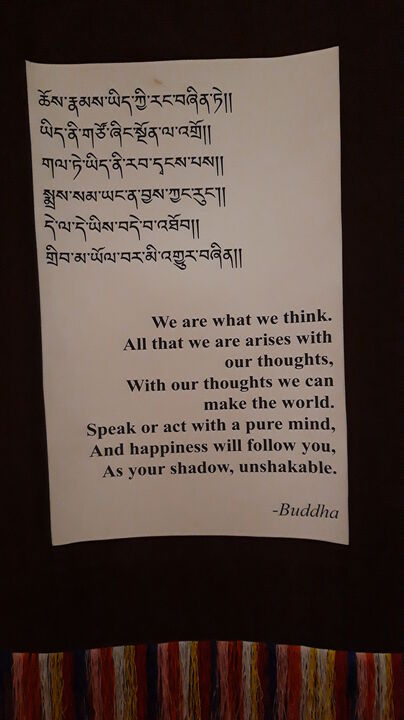 ཆོས་རྣམས་ཡིད་ཀྱི་རང་བཞིན་ཏེ།།
ཡིད་ནི་གཙོ་ཞིང་སྔོན་ལ་འགྲོ།།
གལ་ཏེ་ཡིད་ནི་རབ་དྭངས་པས།།
སྨྲས་སམ་ཡང་ན་བྱས་ཀྱང་རུང་།།
དེ་ལ་དེ་ཡིས་བདེ་བ་འཐོབ།།
གྲིབ་མ་ཡོལ་བར་མི་འགྱུར་བཞིན།།
We are what we think.
All that we are arises with
our thoughts,
With our thoughts we can
make the world.
Speak or act with a pure mind,
And happiness will follow you,
As your shadow, unshakable.
-Buddha